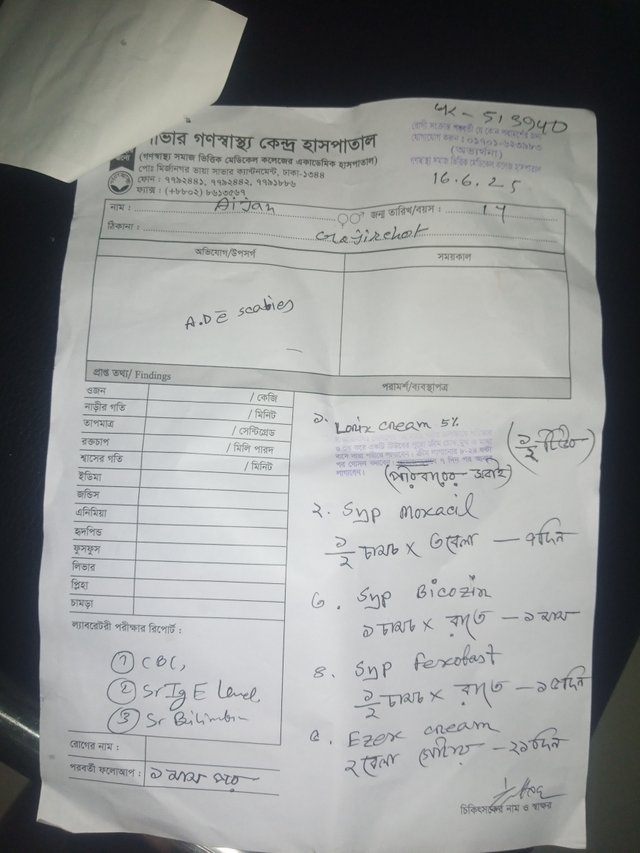 ук - 513940
রোগী সংক্রান্ত পরবর্তী যে কোন পরামর্শের জন্য
যোগাযোগ করুন : ০১৭০১-৬২৩৯৮৩
(অভ্যর্থনা)
গণস্বাস্থ্য সমাজ ভিত্তিক মেডিকেল কলেজ হাসপাতাল
16.6.25
সাভার গণস্বাস্থ্য কেন্দ্র হাসপাতাল
(গণস্বাস্থ্য সমাজ ভিত্তিক মেডিকেল কলেজের একাডেমিক হাসপাতাল)
পোঃ মির্জানগর ভায়া সাভার ক্যান্টনমেন্ট, ঢাকা-১৩৪৪
ফোন : ৭৭৯২৪৪১, ৭৭৯২৪৪২, ৭৭৯১৮৮৬
ফ্যাক্স : (+৮৮০২) ৮৬১৩৫৬৭
নাম : Aijan জন্ম তারিখ/বয়স : 1y
ঠিকানা :
অভিযোগ/উপসর্গ সময়কাল
A.D c̄ scabies
প্রাপ্ত তথ্য/ Findings
ওজন / কেজি
নাড়ীর গতি / মিনিট
তাপমাত্র / সেন্টিগ্রেড
রক্তচাপ / মিলি পারদ
শ্বাসের গতি / মিনিট
ইডিমা
জন্ডিস
এনিমিয়া
হৃদপিন্ড
ফুসফুস
লিভার
প্লিহা
চামড়া
ল্যাবরেটরী পরীক্ষার রিপোর্ট :
① CBC,
② Sr IgE Level
③ Sr Bilirubin
রোগের নাম :
পরবর্তী ফলোআপ : ১ মাস পরে
পরামর্শ/ব্যবস্থাপত্র
১. Lorix cream 5%
(পরিবারের সবাই)
২. Syp Moxacil
১/২ চামচ × ৩বেলা — ৭দিন
৩. Syp Bicozin
১ চামচ × রাতে — ১ মাস
৪. Syp Fexofast
১/২ চামচ × রাতে — ১৫দিন
৫. Ezex cream
২ বেলা — ২১দিন
চিকিৎসকের নাম ও স্বাক্ষর